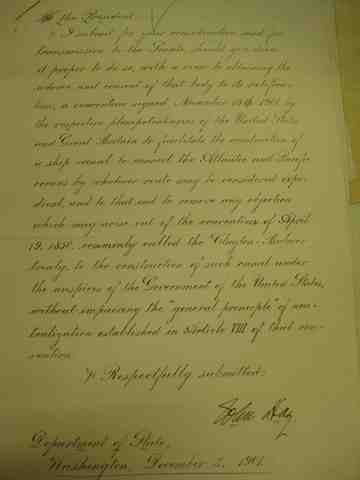 To the President:
I submit for your consideration and for
transmission to the Senate, should you deem
it proper to do so, with a view to obtaining the
advice and consent of that body to its ratifica-
tion, a convention signed, November 18th 1901, by
the respective plenipotentiaries of the United States
and Great Britain to facilitate the construction of
a ship canal to connect the Atlantic and Pacific
oceans by whatever route may be considered expe-
dient, and to that end to remove any objection
which may arise out of the convention of April
19, 1850, commonly called the "Clayton-Bulwer
treaty, to the construction of such canal under
the auspices of the Government of the United States,
without impairing the "general principle" of neu-
tralization established in Article VIII of that con-
vention.
Respectfully submitted:
John Hay.
Department of State,
Washington, December 2, 1901.